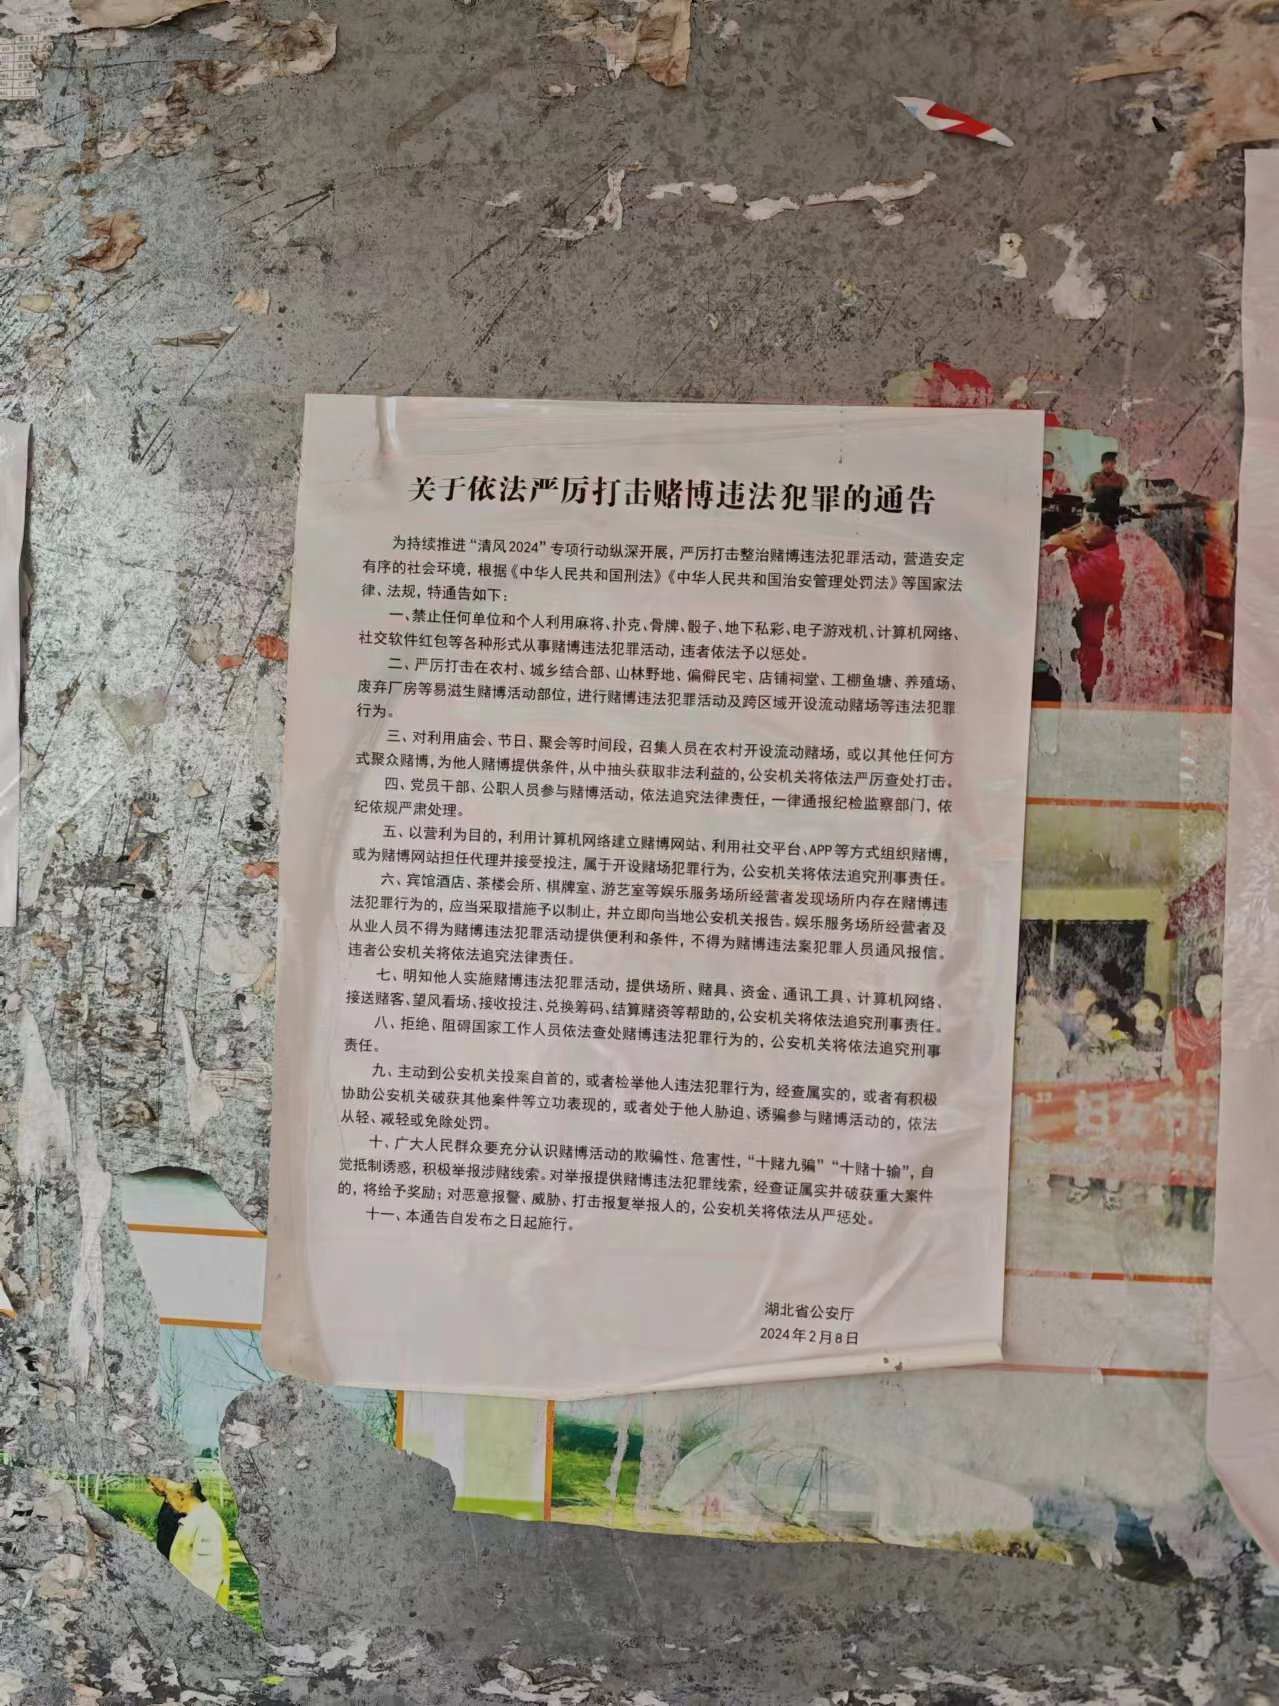 关于依法严厉打击赌博违法犯罪的通告
为持续推进“清风2024”专项行动纵深开展，严厉打击整治赌博违法犯罪活动，营造安定
有序的社会环境，根据《中华人民共和国刑法》《中华人民共和国治安管理处罚法》等国家法
律、法规，特通告如下：
一、禁止任何单位和个人利用麻将、扑克、骨牌、骰子、地下私彩、电子游戏机、计算机网络、
社交软件红包等各种形式从事赌博违法犯罪活动，违者依法予以惩处。
二、严厉打击在农村、城乡结合部、山林野地、偏僻民宅、店铺祠堂、工棚鱼塘、养殖场、
废弃厂房等易滋生赌博活动部位，进行赌博违法犯罪活动及跨区域开设流动赌场等违法犯罪
行为。
三、对利用庙会、节日、聚会等时间段，召集人员在农村开设流动赌场，或以其他任何方
式聚众赌博，为他人赌博提供条件，从中抽头获取非法利益的，公安机关将依法严厉查处打击。
四、党员干部、公职人员参与赌博活动，依法追究法律责任，一律通报纪检监察部门，依
纪依规严肃处理。
五、以营利为目的，利用计算机网络建立赌博网站、利用社交平台、APP等方式组织赌博，
或为赌博网站担任代理并接受投注，属于开设赌场犯罪行为，公安机关将依法追究刑事责任。
六、宾馆酒店、茶楼会所、棋牌室、游艺室等娱乐服务场所经营者发现场所内存在赌博违
法犯罪行为的，应当采取措施予以制止，并立即向当地公安机关报告。娱乐服务场所经营者及
从业人员不得为赌博违法犯罪活动提供便利和条件，不得为赌博违法案犯罪人员通风报信。
违者公安机关将依法追究法律责任。
七、明知他人实施赌博违法犯罪活动，提供场所、赌具、资金、通讯工具、计算机网络、
接送赌客、望风看场、接收投注、兑换筹码、结算赌资等帮助的，公安机关将依法追究刑事责任。
八、拒绝、阻碍国家工作人员依法查处赌博违法犯罪行为的，公安机关将依法追究刑事
责任。
九、主动到公安机关投案自首的，或者检举他人违法犯罪行为，经查属实的，或者有积极
协助公安机关破获其他案件等立功表现的，或者处于他人胁迫、诱骗参与赌博活动的，依法
从轻、减轻或免除处罚。
十、广大人民群众要充分认识赌博活动的欺骗性、危害性，“十赌九骗”“十赌十输”，自
觉抵制诱惑，积极举报涉赌线索。对举报提供赌博违法犯罪线索，经查证属实并破获重大案件
的，将给予奖励；对恶意报警、威胁、打击报复举报人的，公安机关将依法从严惩处。
十一、本通告自发布之日起施行。
湖北省公安厅
2024年2月8日